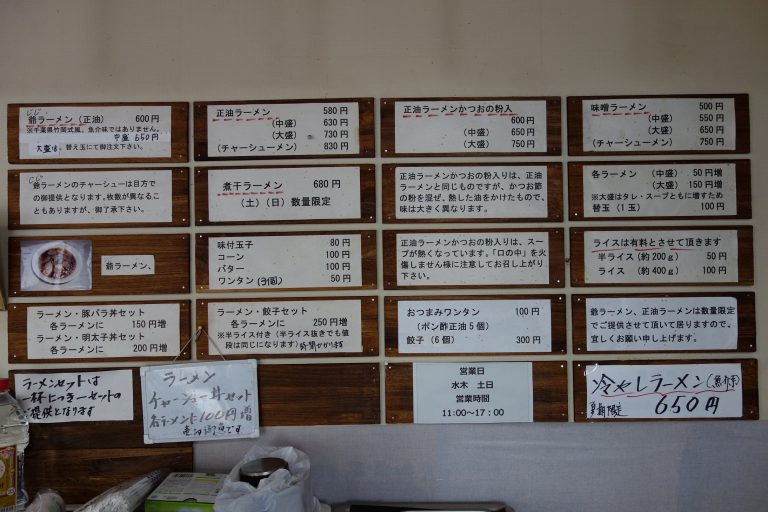 じじ
爺ラーメン（正油） 600円
※千葉県竹岡式風、魚介味ではありません。
中盛 650円
大盛は、替え玉にて御注文下さい。
正油ラーメン 580円
（中盛） 630円
（大盛） 730円
（チャーシューメン） 830円
正油ラーメンかつおの粉入
600円
（中盛） 650円
（大盛） 750円
味噌ラーメン 500円
（中盛） 550円
（大盛） 650円
（チャーシューメン） 750円
じじ
爺ラーメンのチャーシューは目方で
の御提供となります。枚数が異なるこ
ともありますが、御了承下さい。
煮干ラーメン 680円
（土）（日）数量限定
正油ラーメンかつおの粉入りは、正油
ラーメンと同じものですが、かつお節
の粉を混ぜ、熱した油をかけたもので、
味は大きく異なります。
各ラーメン （中盛） 50円増
（大盛） 150円増
※大盛はタレ・スープともに増すため
替玉（1玉） 100円
爺ラーメン、
味付玉子 80円
コーン 100円
バター 100円
ワンタン（3個） 50円
正油ラーメンかつおの粉入りは、スー
プが熱くなっています。「口の中」を火
傷しません様に注意してお召し上がり
下さい。
ライスは有料とさせて頂きます
半ライス（約200g） 50円
ライス （約400g） 100円
ラーメン・豚バラ丼セット
各ラーメンに 150円増
ラーメン・明太子丼セット
各ラーメンに 200円増
ラーメン・餃子セット
各ラーメンに 250円増
※半ライス付き（半ライス抜きでも値
段は同じになります）時間かかります
おつまみワンタン 100円
（ポン酢正油5個）
餃子（6個） 300円
爺ラーメン、正油ラーメンは数量限定
でご提供させて頂いて居りますので、
宜しくお願い申し上げます。
ラーメンセットは
一杯につき一セットの
ご提供となります
ラーメン
チャーシュー丼セット
各ラーメンに100円増
営業日
水木 土日
営業時間
11:00～17:00
冷やしラーメン
夏期限定 650円